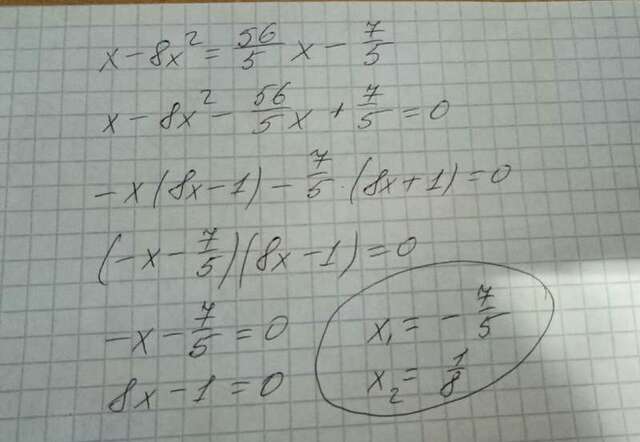 x - 8x² = 56/5 x - 7/5
x - 8x² - 56/5 x + 7/5 = 0
-x(8x-1) - 7/5 · (8x+1) = 0
(-x - 7/5)(8x-1) = 0
-x - 7/5 = 0
8x - 1 = 0
x₁ = - 7/5
x₂ = 1/8